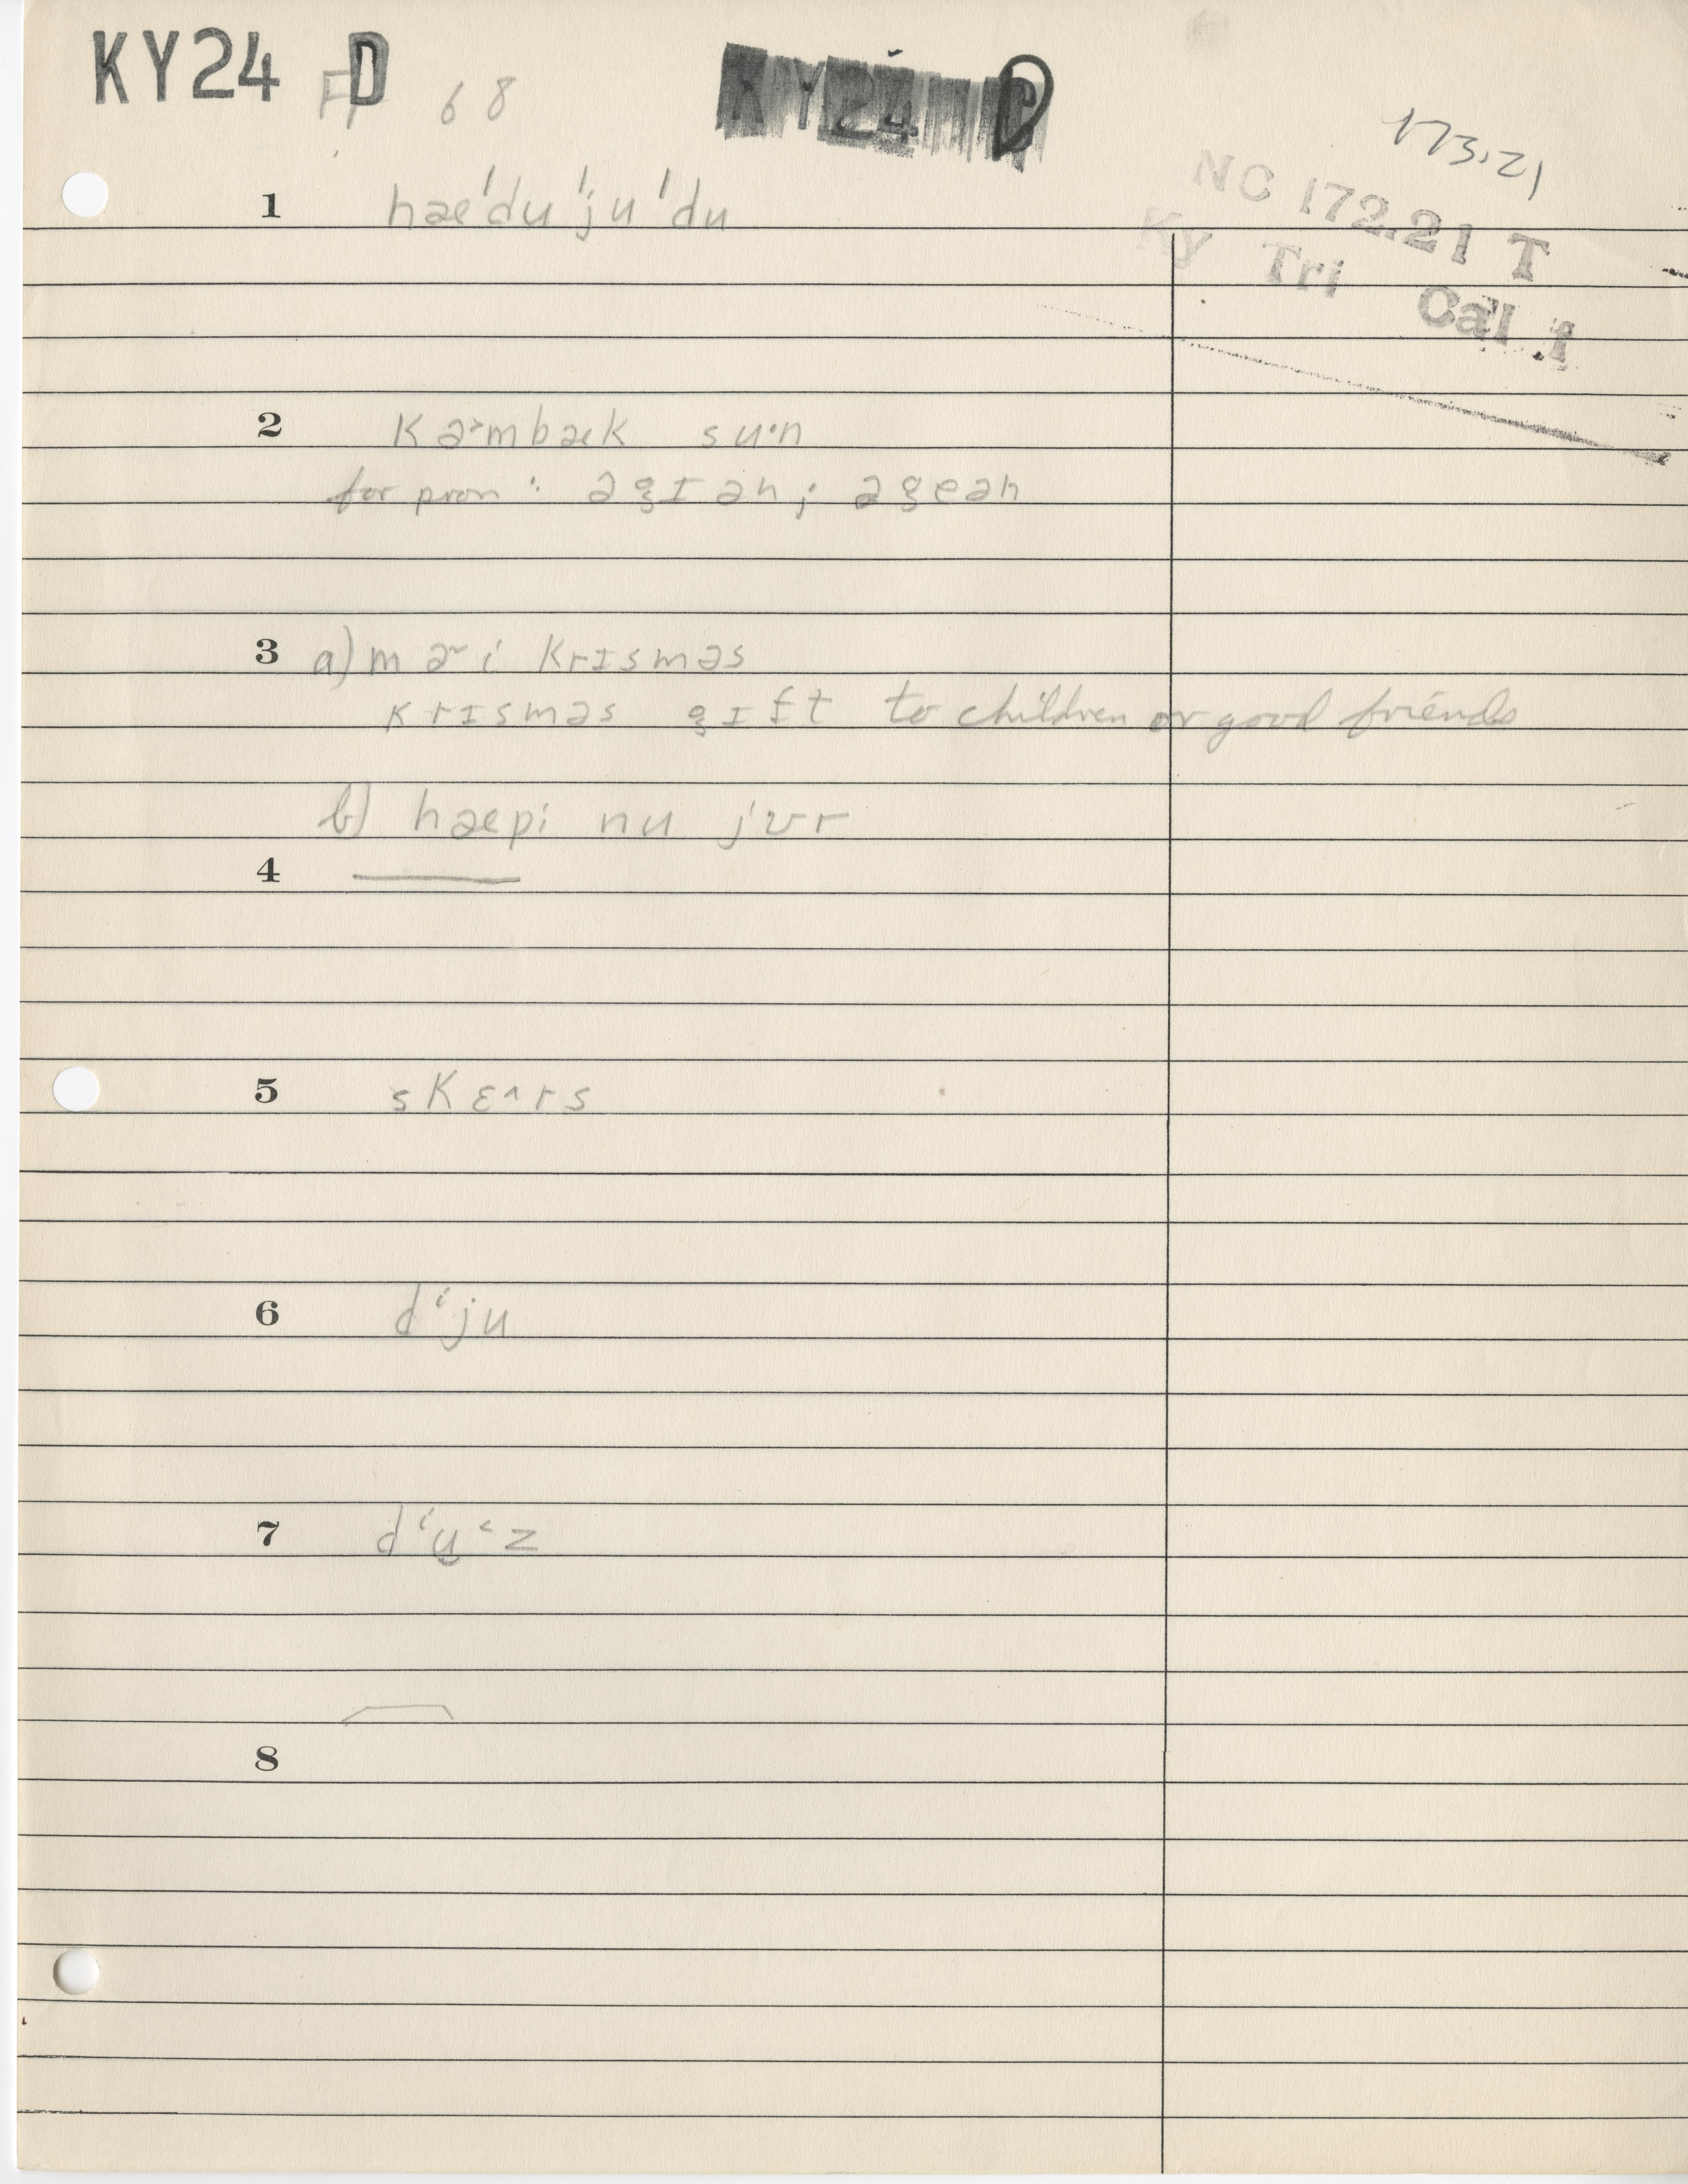 KY24 D 68
KY24 D
173.21
NC 172.21 T
Ky Tri Cal.f
1 hæ'du'ju'du
2 kəmbæk su·n
for pron: əgɪən; əgeən
3 a) mə˞i krɪsməs
krɪsməs gɪft to children or good friends
b) hæpi nu jɪr
4 ———
5 skɛ^rs
6 dⁱju
7 dⁱu̯ⁱz
8